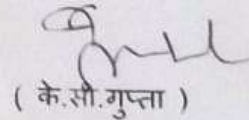 ( के.सी.गुप्ता )